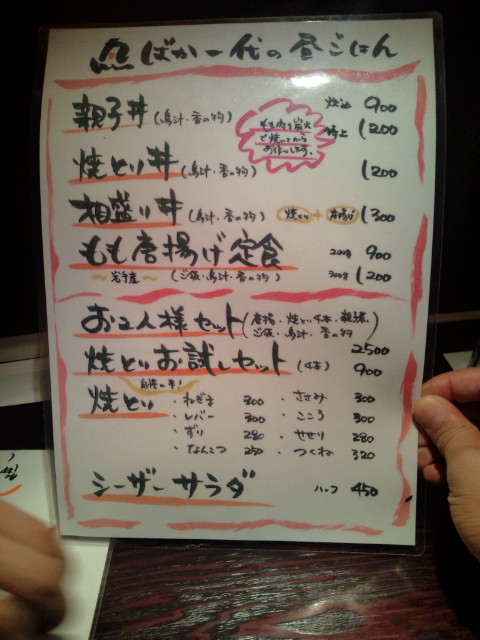 魚ばか一代の昼ごはん
親子丼(鳥汁・香の物) 900
特上 1200
もも肉を炭火
で焼いてから
お作りします。
焼とり丼(鳥汁・香の物) 1200
相盛り丼(鳥汁・香の物) 焼とり+唐揚げ 1300
もも唐揚げ定食 200g 900
〜岩手産〜 (ご飯・鳥汁・香の物) 300g 1200
お2人様セット(唐揚・焼とり4本・親子丼
ご飯・鳥汁・香の物) 2500
焼とりお試しセット(4本) 900
自慢の串!
焼とり
・ねぎま 300 ・ささみ 300
・レバー 300 ・こころ 300
・ずり 280 ・せせり 280
・なんこつ 250 ・つくね 320
シーザーサラダ ハーフ 450